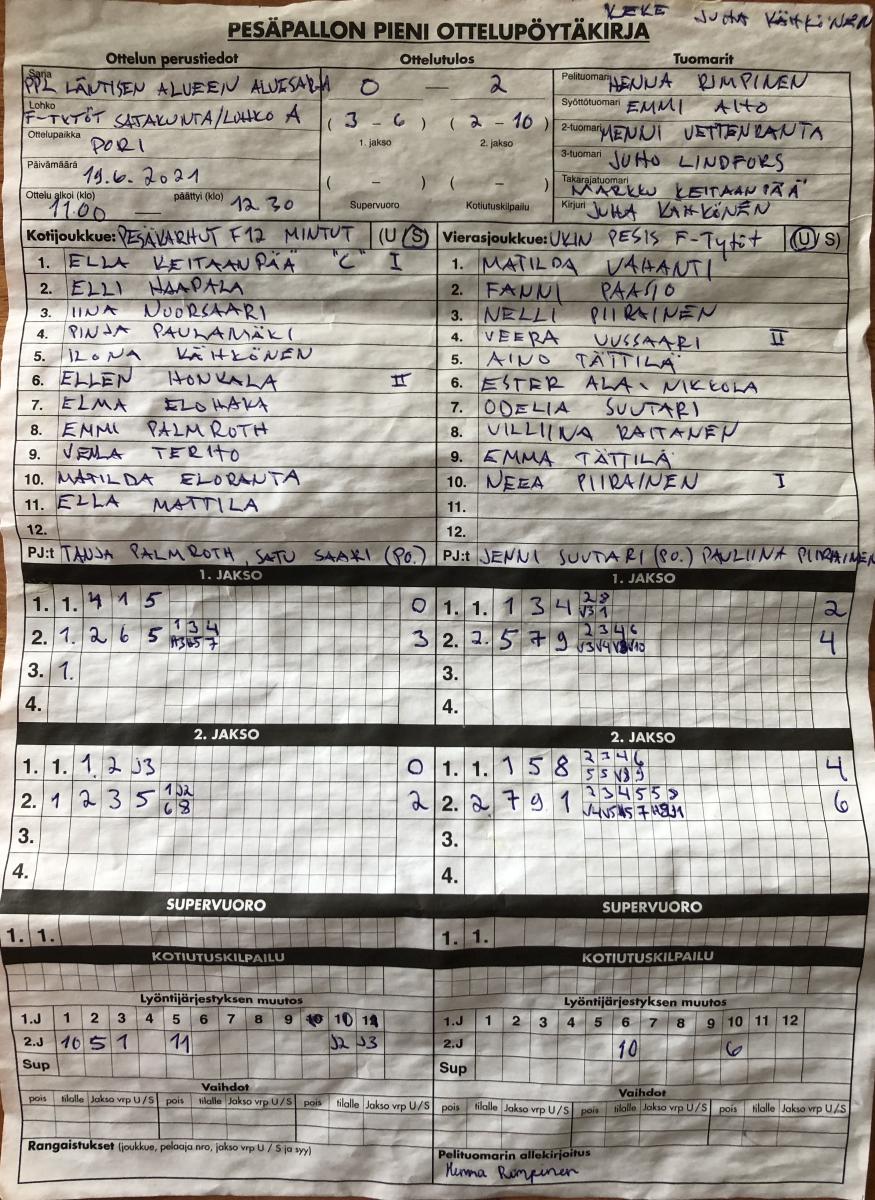 KEKE JUHA KÄHKÖNEN
PESÄPALLON PIENI OTTELUPÖYTÄKIRJA
Ottelun perustiedot Ottelutulos Tuomarit
Sarja PPL LÄNTISEN ALUEEN ALUESARJA 0 — 2 Pelituomari HENNA RIMPINEN
Lohko F-TYTÖT SATAKUNTA/LOHKO A ( 3 - 6 ) ( 2 - 10 ) Syöttötuomari EMMI AITO
1. jakso 2. jakso
Ottelupaikka PORI 2-tuomari MENNI VETTENRANTA
Päivämäärä 19.6.2021 3-tuomari JUHO LINDFORS
( - ) ( - ) Takarajatuomari MARKKU KEITAANPÄÄ
Ottelu alkoi (klo) 11.00 — päättyi (klo) 12 30 Supervuoro Kotiutuskilpailu Kirjuri JUHA KÄHKÖNEN
Kotijoukkue: PESÄKARHUT F12 MINTUT (U/S) Vierasjoukkue: UKIN PESIS F-Tytöt (U/S)
1. ELLA KEITAANPÄÄ "C" I 1. MATILDA VAHANTI
2. ELLI HAAPALA 2. FANNI PAASIO
3. IINA NUORSAARI 3. NELLI PIIRAINEN
4. PINJA PAULAMÄKI 4. VEERA UUSSAARI II
5. ILONA KÄHKÖNEN 5. AINO TÄTTILÄ
6. ELLEN HONKALA II 6. ESTER ALA-NIKKOLA
7. ELMA ELOHAKA 7. ODELIA SUUTARI
8. EMMI PALMROTH 8. VILLIINA RAITANEN
9. VENLA TERIHO 9. EMMA TÄTTILÄ
10. MATILDA ELORANTA 10. NEEA PIIRAINEN I
11. ELLA MATTILA 11.
12. 12.
PJ:t TANJA PALMROTH, SATU SAARI (PO.) PJ:t JENNI SUUTARI (PO.) PAULIINA PIIRAINEN
1. JAKSO 1. JAKSO
1. 1. 4 1 5 0 1. 1. 1 3 4 2 8 2
V3 1
2. 1. 2 6 5 1 3 4 3 2. 2. 5 7 9 2 3 4 6 4
3. 1. 3.
4. 4.
2. JAKSO 2. JAKSO
1. 1. 1 2 J3 0 1. 1. 1 5 8 2 3 4 6 4
5 5 V8 9
2. 1 2 3 5 1 J2 2 2. 2. 7 9 1 2 3 4 5 5 8 6
6 8
3. 3.
4. 4.
SUPERVUORO SUPERVUORO
1. 1. 1. 1.
KOTIUTUSKILPAILU KOTIUTUSKILPAILU
Lyöntijärjestyksen muutos Lyöntijärjestyksen muutos
1.J 1 2 3 4 5 6 7 8 9 10 11 12 1.J 1 2 3 4 5 6 7 8 9 10 11 12
2.J 10 5 1 11 J2 J3 2.J 10 6
Sup Sup
Vaihdot Vaihdot
pois tilalle Jakso vrp U / S pois tilalle Jakso vrp U / S pois tilalle Jakso vrp U / S pois tilalle Jakso vrp U / S pois tilalle Jakso vrp U / S pois tilalle Jakso vrp U / S
Rangaistukset (joukkue, pelaaja nro, jakso vrp U / S ja syy) Pelituomarin allekirjoitus
Henna Rimpinen